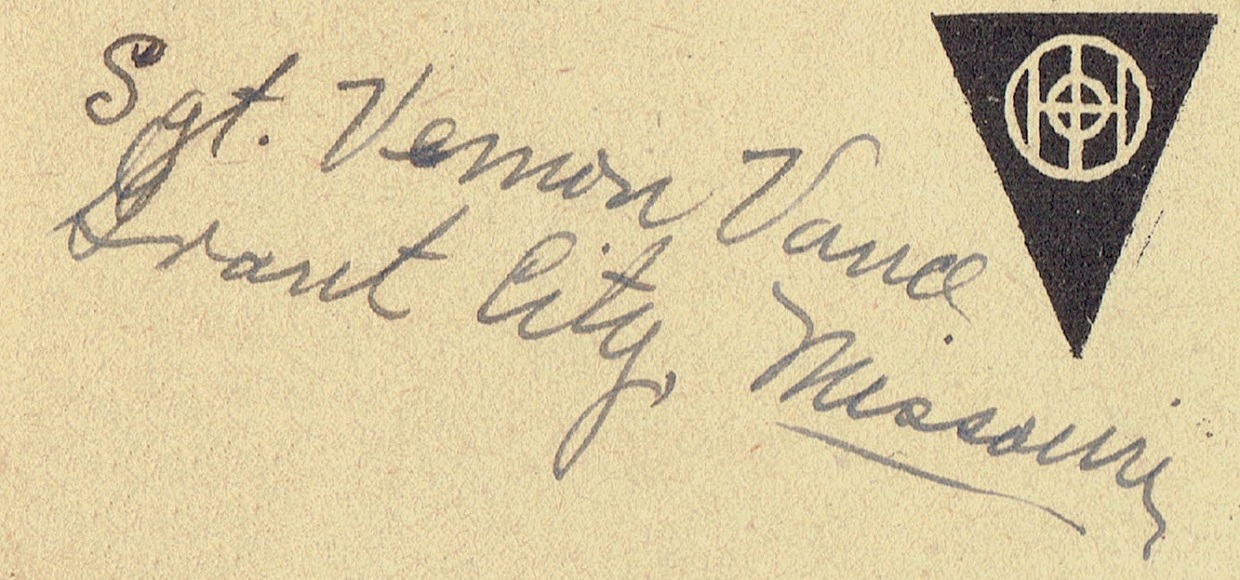 Sgt. Vernon Vance
Grant City, Missouri